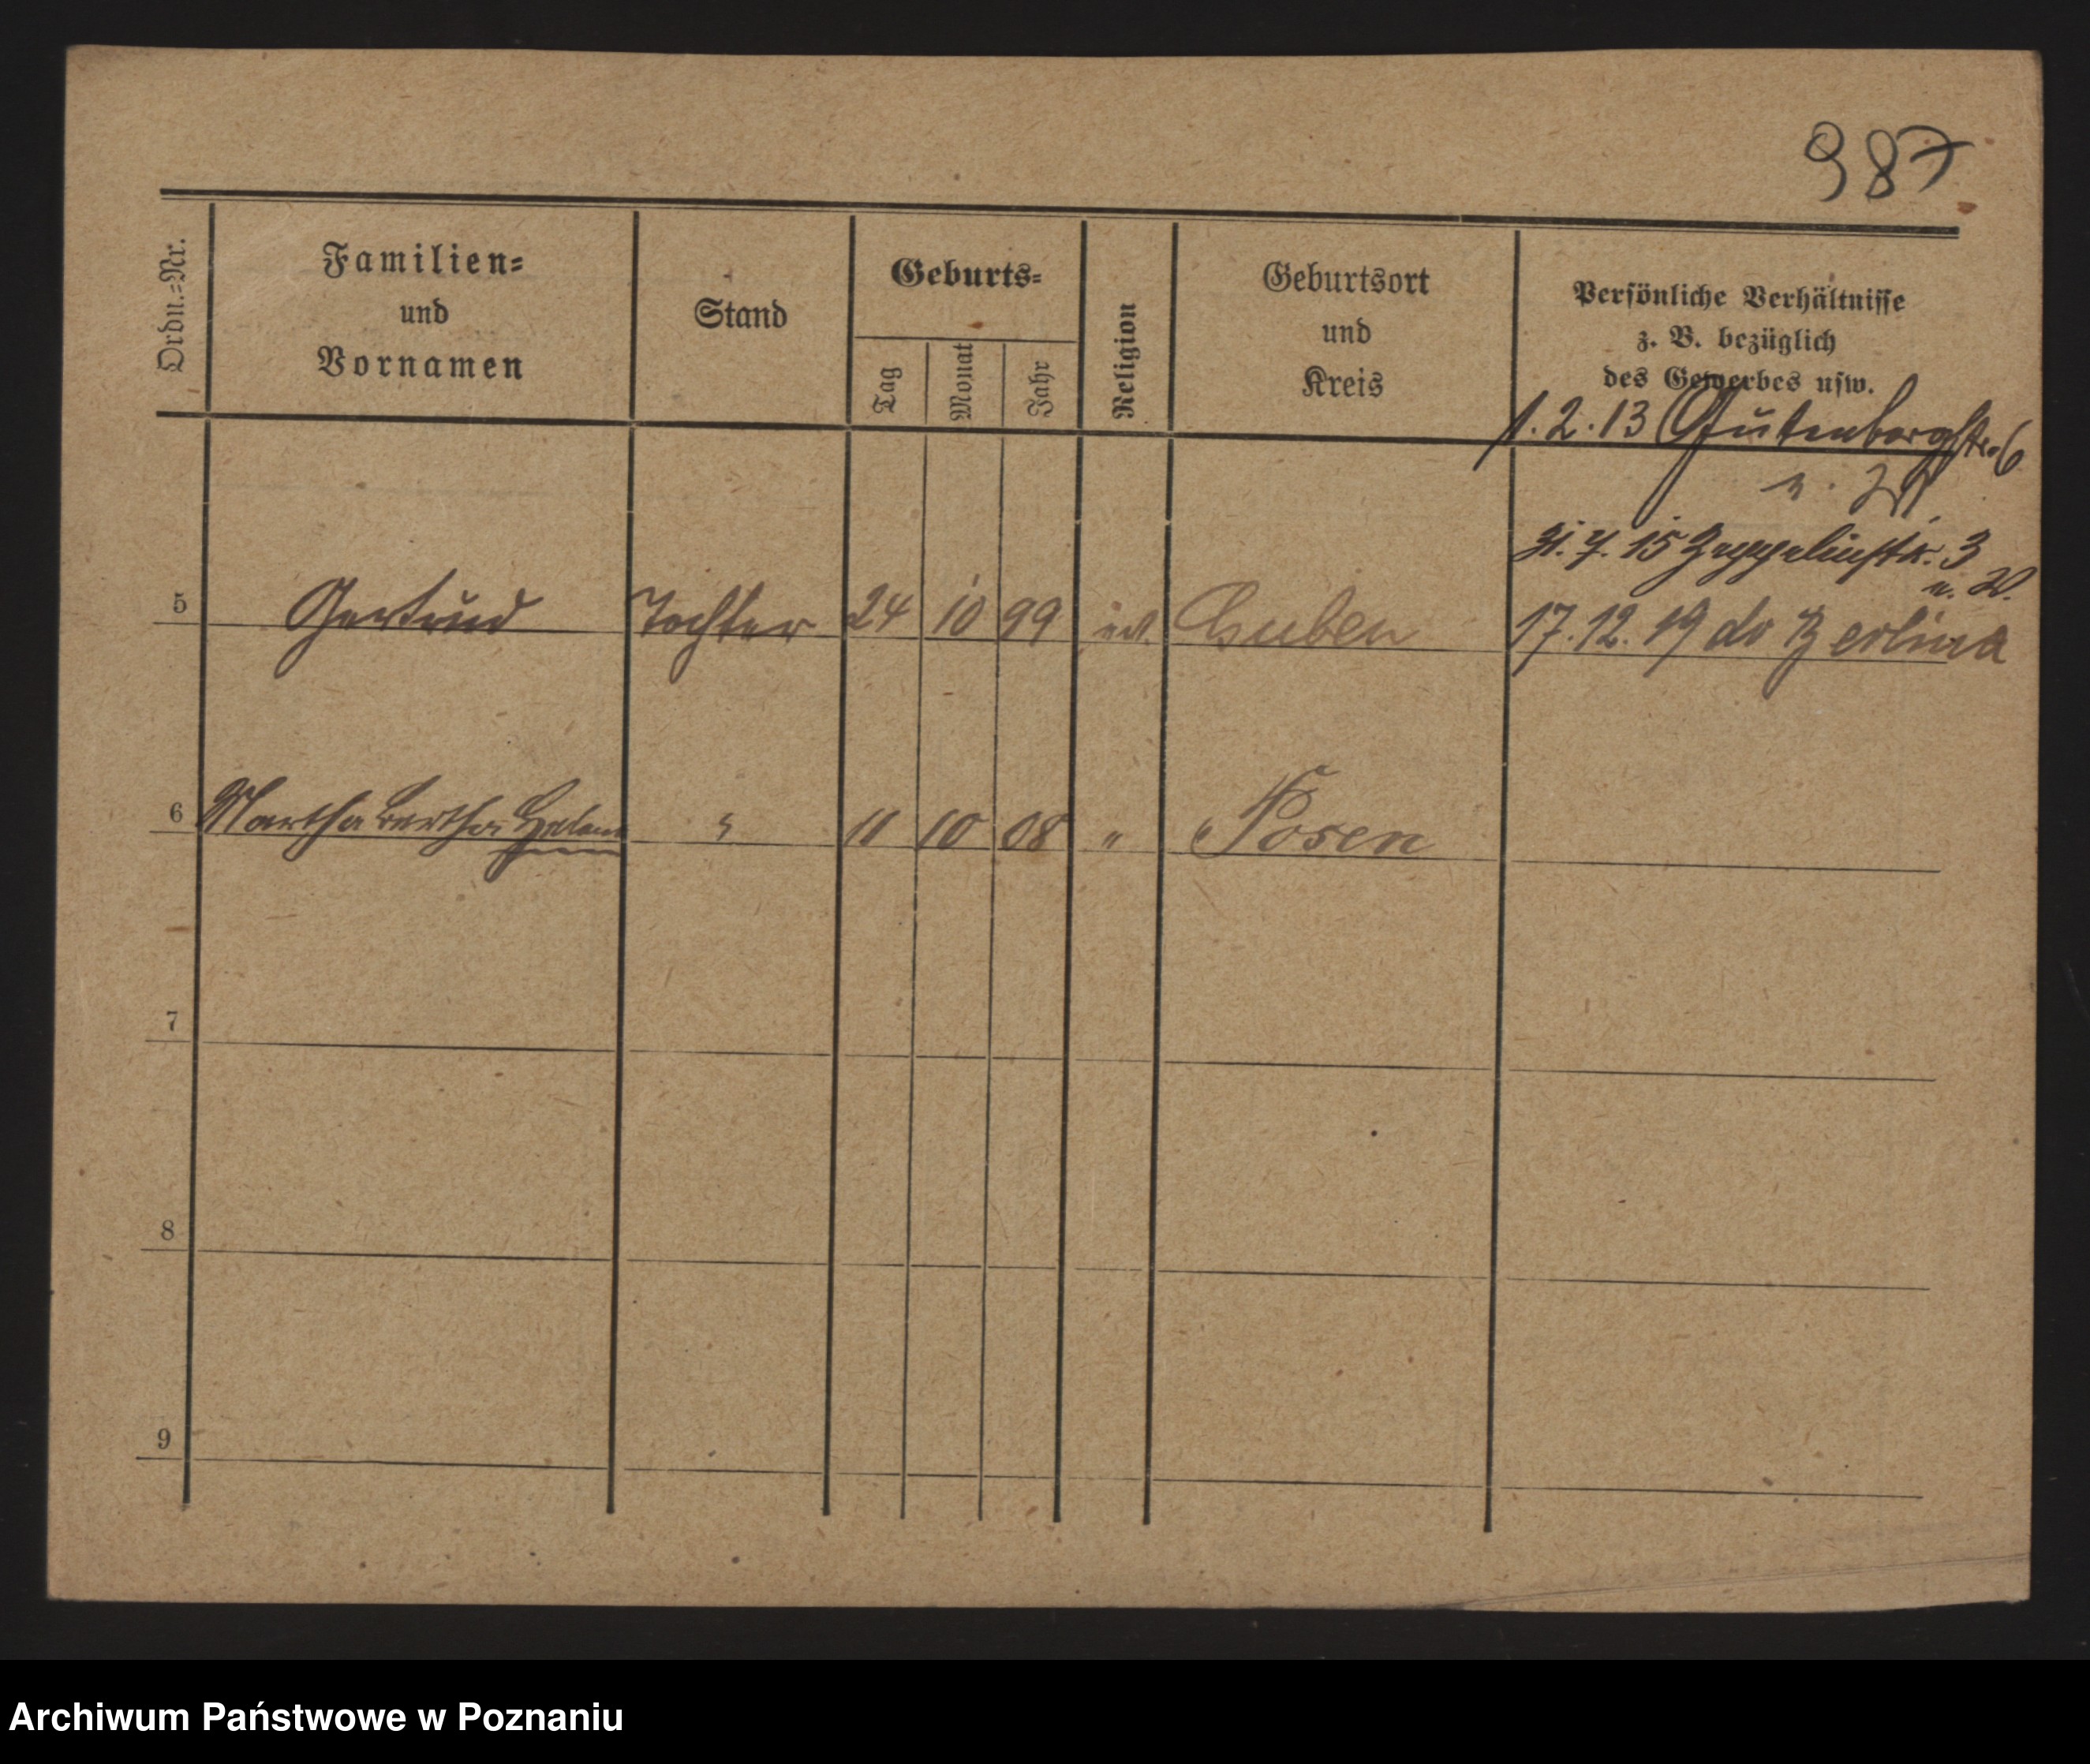 987
Ordn.=Nr.
Familien=
und
Vornamen
Stand
Geburts=
Tag
Monat
Jahr
Religion
Geburtsort
und
Kreis
Persönliche Verhältnisse
z. B. bezüglich
des Gewerbes usw.
1.2.13 Gutenbergstr. 6
31.7.15 Zeppelinstr. 3
5 Gertrud Tochter 24 10 99 ev. Guben 17.12.19 do Berlina
6 Martha Bertha Helene " 11 10 08 " Posen
7
8
9
Archiwum Państwowe w Poznaniu